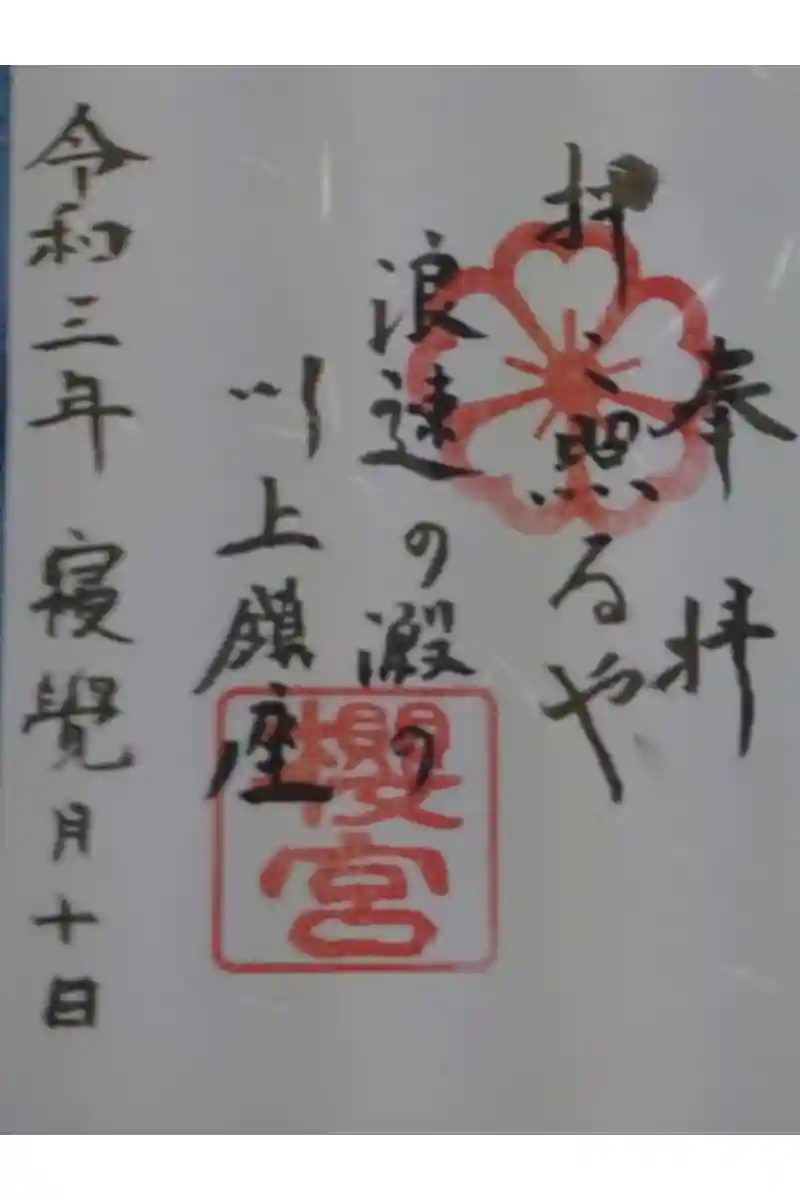 奉拝
押し照るや
浪速の澱の
川上鎮座
令和三年 寝覺月十日
櫻宮